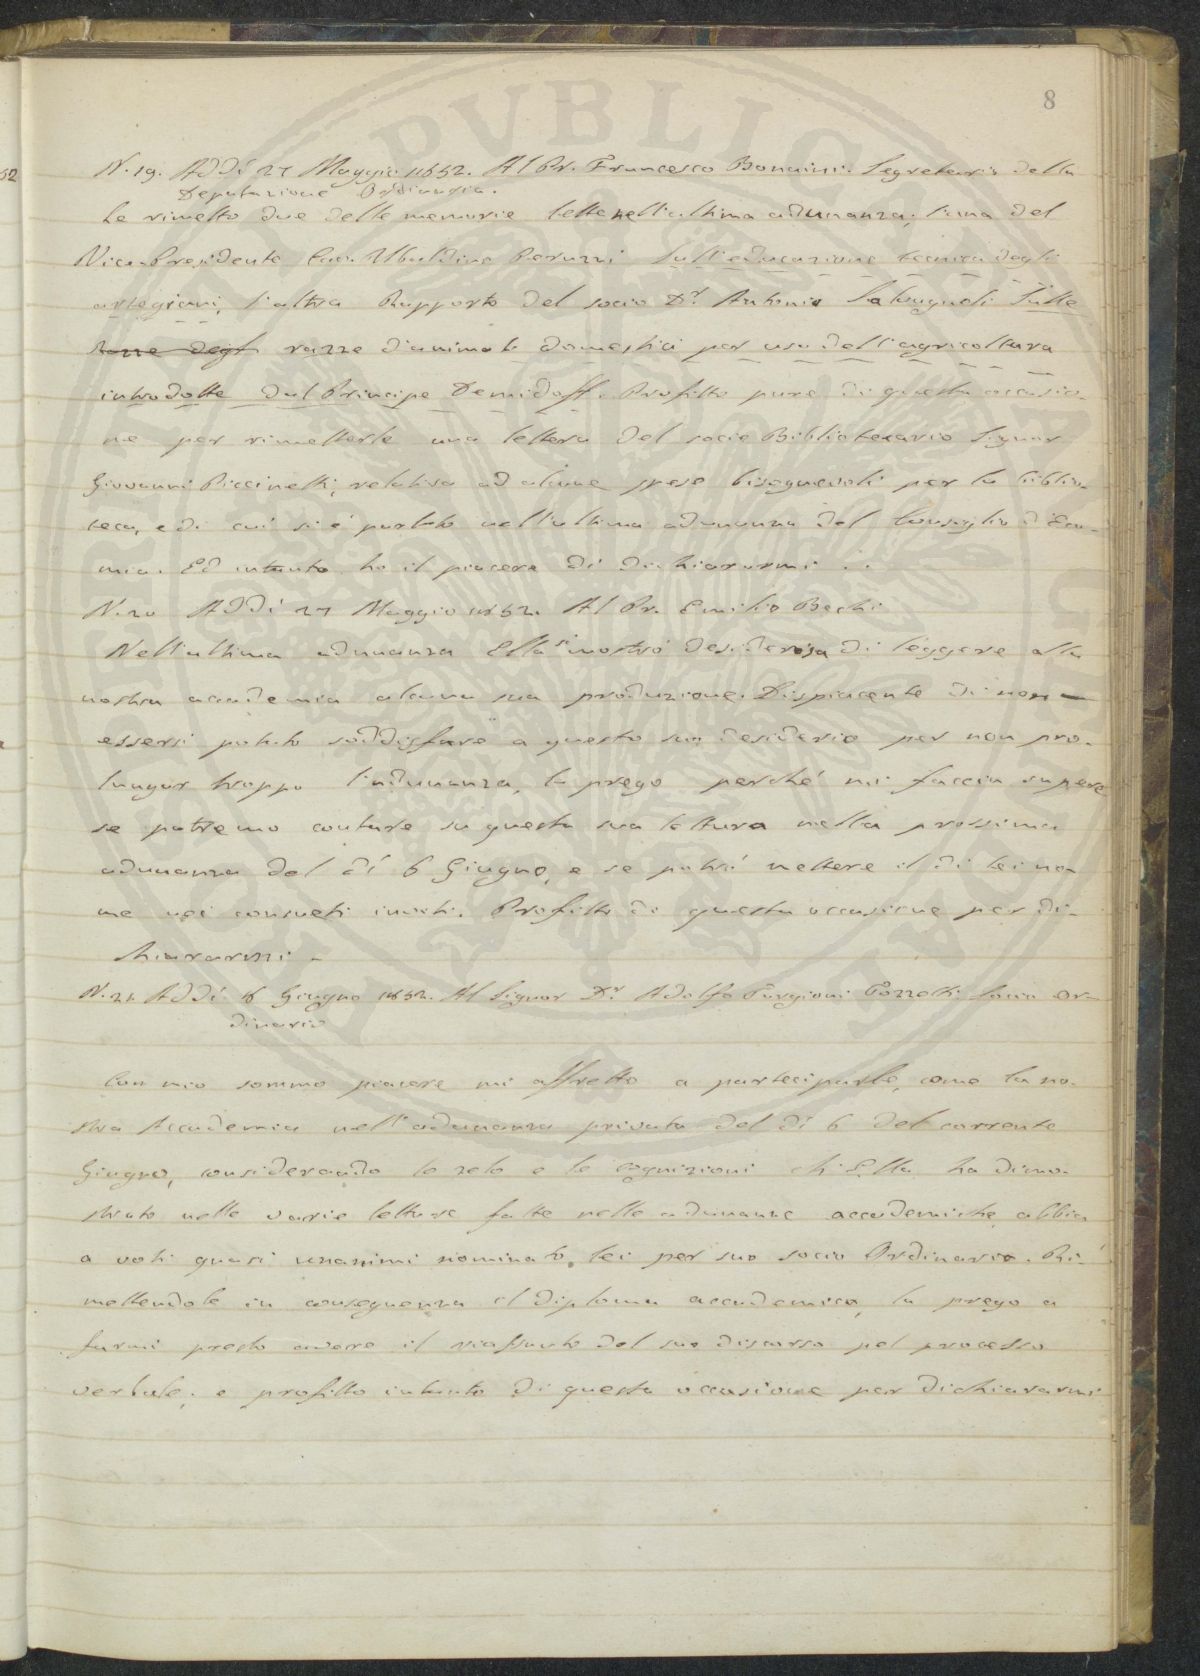 8
N. 19. Addì 27 Maggio 1852. Al Pr. Francesco Bonaini. Segretario della
Deputazione Ordinaria.
Le rimetto due delle memorie lette nell'ultima adunanza; l'una del
Vice-Presidente Cav. Ubaldino Peruzzi sull'educazione tecnica degli
artegiani, l'altra Rapporto del socio Dr. Antonio Salvagnoli "Sulle
razze degl razze d'animali domestici per uso dell'agricoltura
introdotte dal Principe Demidoff. Profitto pure di questa occasio-
ne per rimetterle una lettera del socio Bibliotecario Signor
Giovanni Piccinetti, relativa ad alcune spese bisognevoli per la biblio-
teca, e di cui si è parlato nell'ultima adunanza del Consiglio d'Eco-
mia. Ed intanto ho il piacere di dichiararmi . .
N. 20 Addì 27 Maggio 1852. Al Pr. Emilio Bechi
Nell'ultima adunanza Ella si mostrò desiderosa di leggere alla
nostra accademia alcuna sua produzione. Dispiacente di non
essersi potuto soddisfare a questo suo desiderio per non pro-
lungar troppo l'adunanza, la prego perché mi faccia sapere
se potremo contare su questa sua lettura nella prossima
adunanza del dì 6 Giugno, e se potrò mettere il di lei no
me nei consueti inviti. Profitto di questa occasione per di-
chiararmi -
N. 21. Addì 8 Giugno 1852. Al Signor Dr. Adolfo Targioni Tozzetti Socio Or-
dinario
Con mio sommo piacere mi affretto a parteciparle, come la no-
stra Accademia nell'adunanza privata del dì 6 del corrente
Giugno, considerando lo zelo e le cognizioni ch'Ella ha dimo-
strato nelle varie letture fatte nelle adunanze accademiche abbia
a voti quasi unanimi nominato lei per suo socio Ordinario. Ri-
mettendole in conseguenza il diploma accademico, la prego a
farmi presto avere il riassunto del suo discorso pel processo
verbale; e profitto intanto di questa occasione per dichiararmi